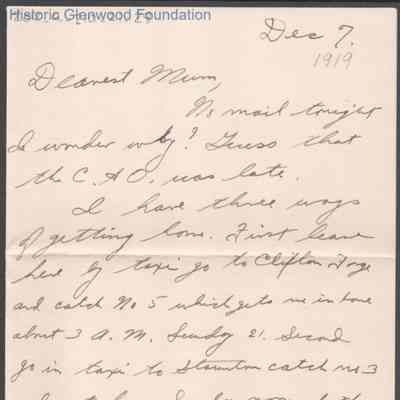 Historic Glenwood Foundation
Dec 7.
1919
Dearest Mum,
No mail tonight
I wonder why? Guess that
the C. & O. was late.
I have three ways
of getting home. First leave
here by taxi go to Clifton Forge
and catch No 5 which gets me in home
about 3 A.M. Sunday 21. Second
go in taxi to Staunton catch no 3